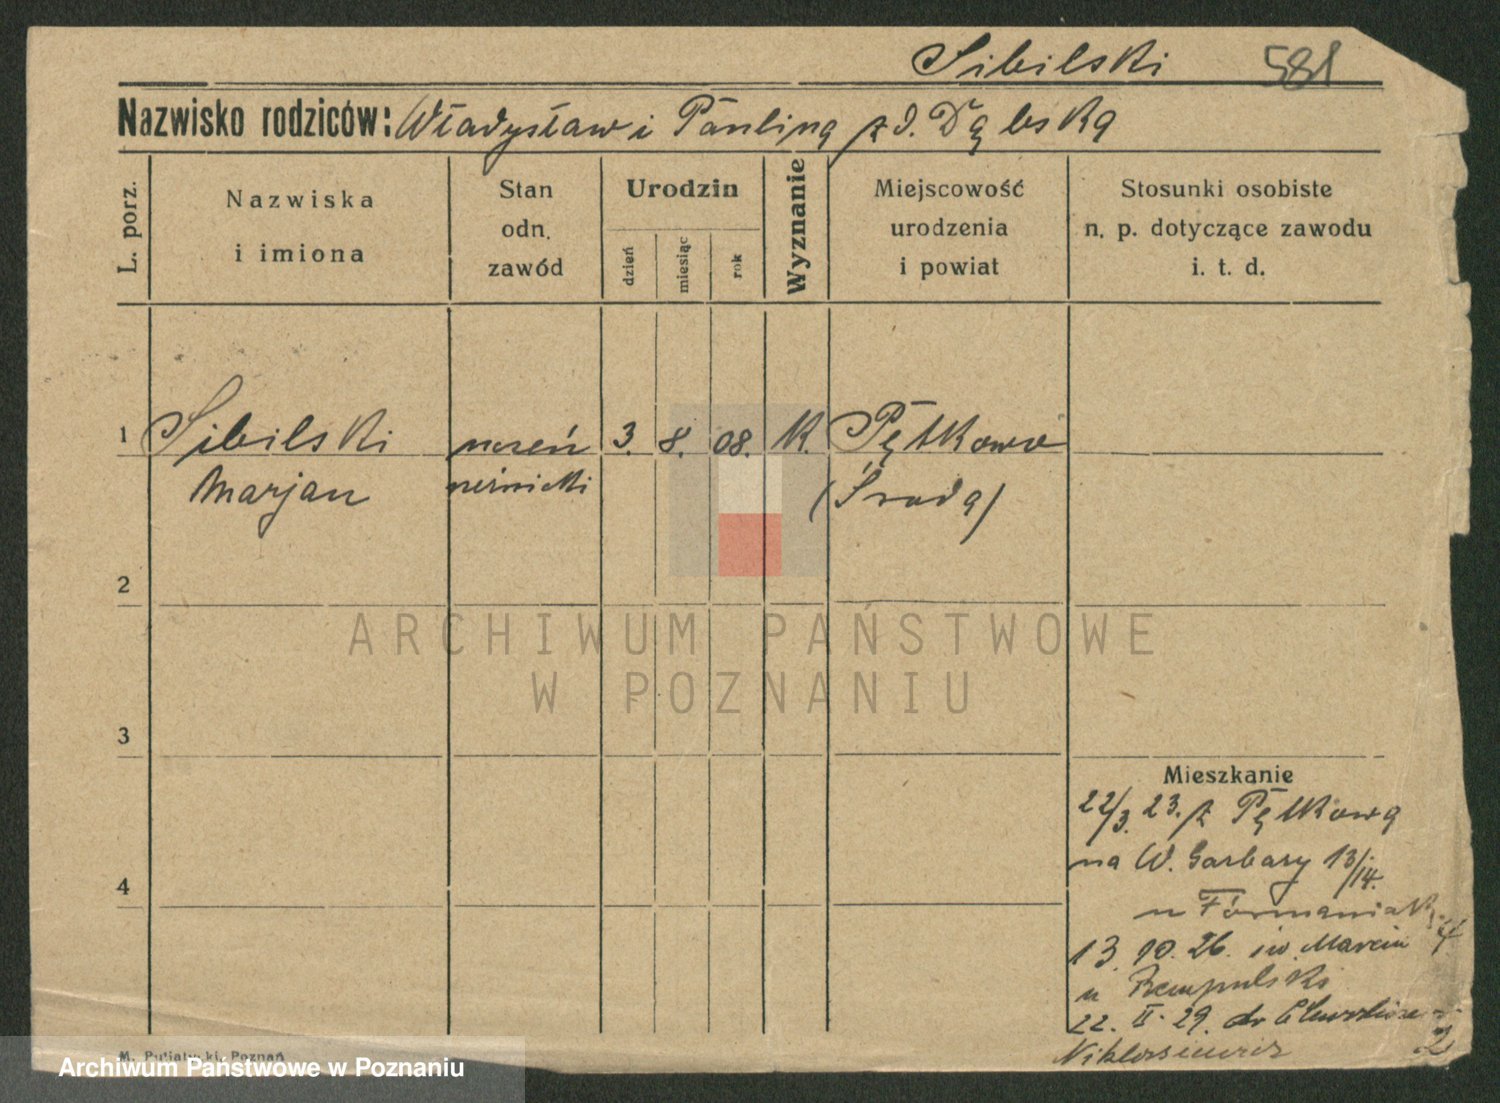 Sibilski 581
Nazwisko rodziców: Władysław i Paulina z d. Dąbska
L. porz.
Nazwiska
i imiona
Stan
odn.
zawód
Urodzin
dzień
miesiąc
rok
Wyznanie
Miejscowość
urodzenia
i powiat
Stosunki osobiste
n. p. dotyczące zawodu
i. t. d.
1 Sibilski uczeń 3. 8. 08. K. Pętkowo
Marjan (Środa)
2
3
4
Mieszkanie
22/3. 23. z Pętkowa
na W. Garbary 13/14.
u Furmaniak
13. 10. 26. św. Marcin 4.
u
22. II. 29. do 2
M. Putiatycki, Poznań
ARCHIWUM PAŃSTWOWE
W POZNANIU
Archiwum Państwowe w Poznaniu